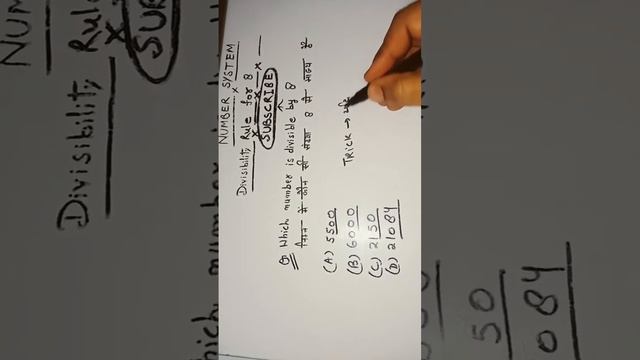 NUMBER SYSTEM
Divisibility Rule for 8
SUBSCRIBE
Q Which number is divisible by 8
निम्न में कौन सी संख्या 8 से भाज्य है
(A) 5500
(B) 6000
(C) 2150
(D) 21084
TRICK →